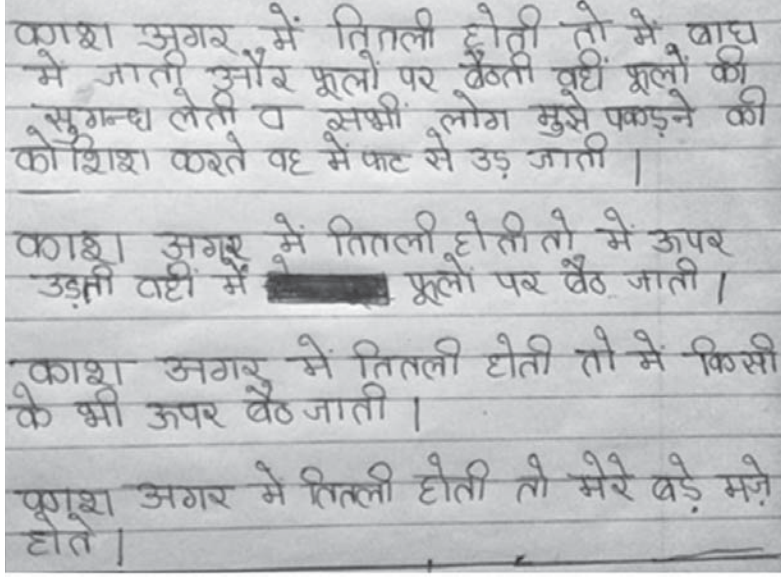 काश अगर में तितली होती तो में बाघ
में जाती और फूलों पर बैठती वहीं फूलों की
सुगन्ध लेती व सभी लोग मुझे पकड़ने की
कोशिश करते वह में फट से उड़ जाती ।
काश अगर में तितली होती तो में ऊपर
उड़ती वहीं में फूलों पर बैठ जाती ।
काश अगर में तितली होती तो में किसी
के भी ऊपर बैठ जाती ।
अगर में तितली होती तो मेरे बड़े मज़े
होते ।